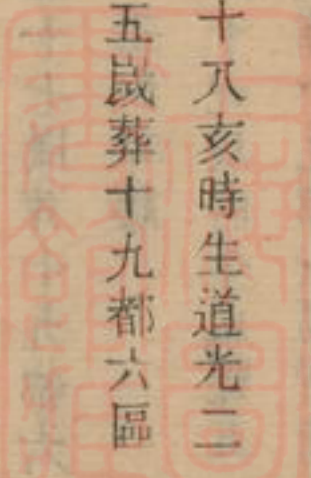 十八亥時生道光二
五歲葬十九都六區